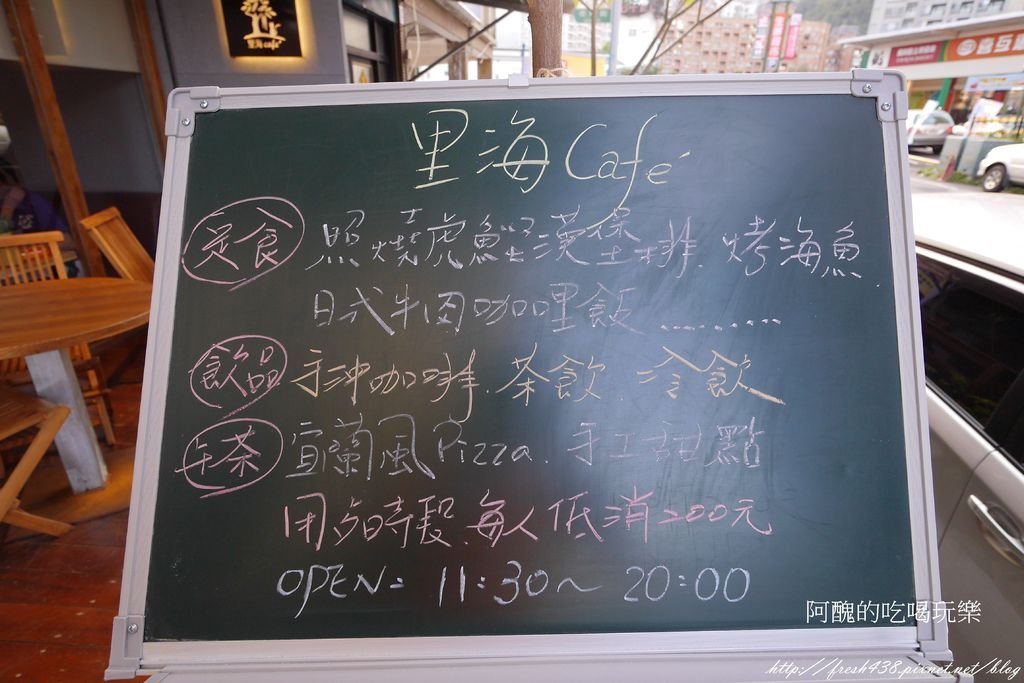 里海cafe
里海 Café
炙食 照燒虎鰻漢堡排. 烤海魚
日式牛肉咖哩飯..........
飲品 手沖咖啡. 茶飲. 冷飲
午茶 宜蘭風Pizza. 手工甜點
用餐時段. 每人低消200元
OPEN= 11:30~ 20:00
阿醜的吃喝玩樂
http://fresh438.pixnet.net/blog